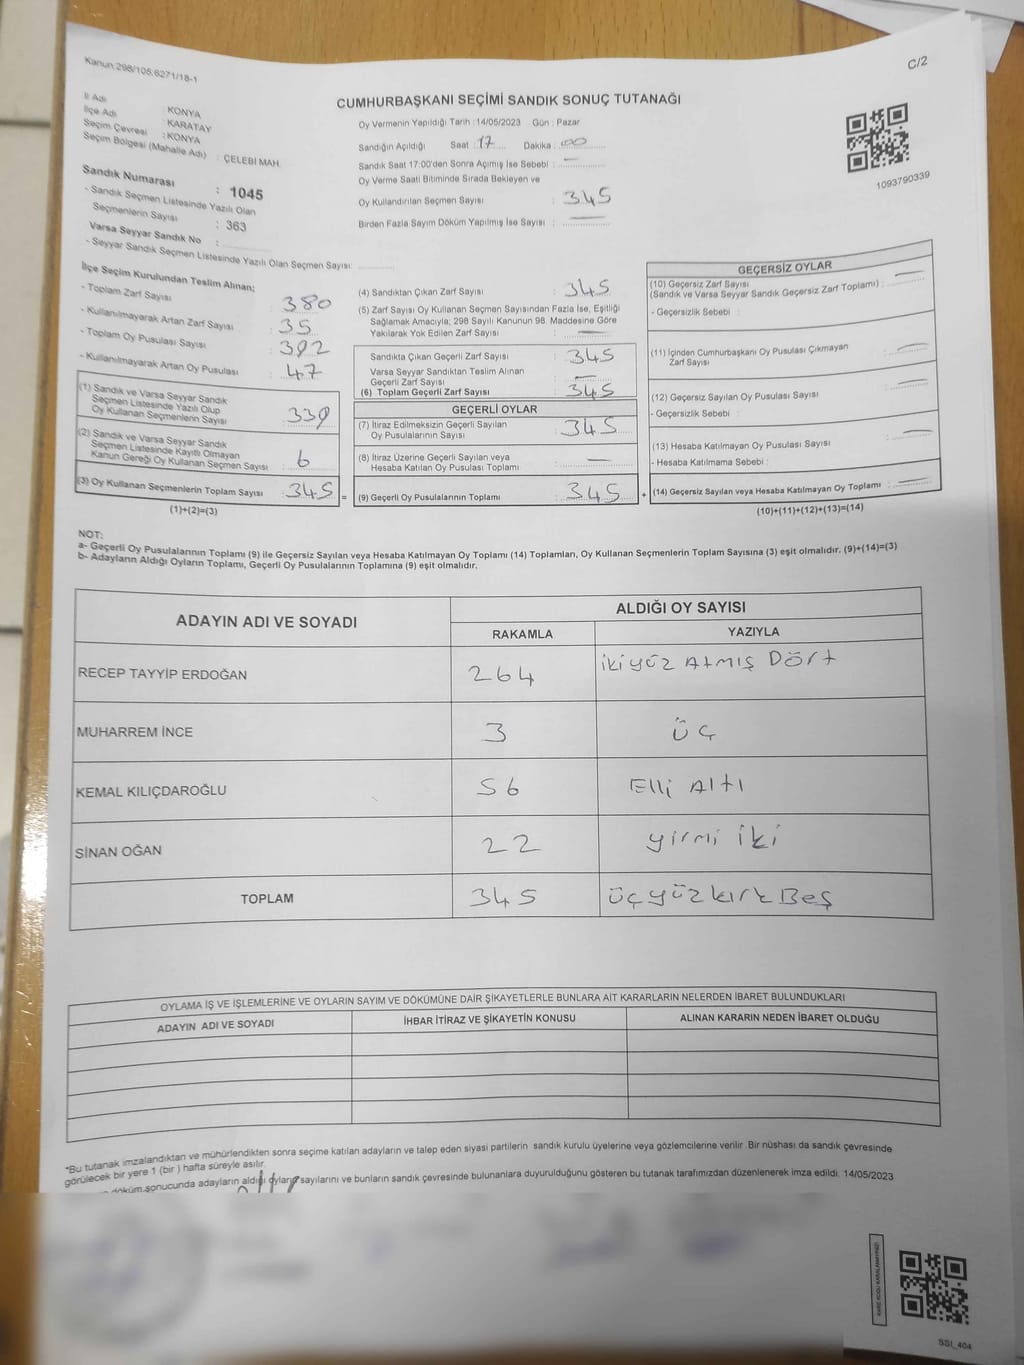 Kanun:298/105,6271/18-1
C/2
CUMHURBAŞKANI SEÇİMİ SANDIK SONUÇ TUTANAĞI
İl Adı : KONYA
İlçe Adı : KARATAY
Seçim Çevresi : KONYA
Seçim Bölgesi (Mahalle Adı) : ÇELEBİ MAH.
Sandık Numarası : 1045
- Sandık Seçmen Listesinde Yazılı Olan
Seçmenlerin Sayısı : 363
Varsa Seyyar Sandık No :
- Seyyar Sandık Seçmen Listesinde Yazılı Olan Seçmen Sayısı:
Oy Vermenin Yapıldığı Tarih : 14/05/2023 Gün : Pazar
Sandığın Açıldığı Saat : 17 Dakika : 00
Sandık Saat 17:00'den Sonra Açımış İse Sebebi : —
Oy Verme Saati Bitiminde Sırada Bekleyen ve
Oy Kullandırılan Seçmen Sayısı : 345
Birden Fazla Sayım Döküm Yapılmış İse Sayısı : —
1093790339
İlçe Seçim Kurulundan Teslim Alınan;
- Toplam Zarf Sayısı 380
- Kullanılmayarak Artan Zarf Sayısı 35
- Toplam Oy Pusulası Sayısı 392
- Kullanılmayarak Artan Oy Pusulası 47
(1) Sandık ve Varsa Seyyar Sandık
Seçmen Listesinde Yazılı Olup
Oy Kullanan Seçmenlerin Sayısı 339
(2) Sandık ve Varsa Seyyar Sandık
Seçmen Listesinde Kayıtlı Olmayan
Kanun Gereği Oy Kullanan Seçmen Sayısı 6
(3) Oy Kullanan Seçmenlerin Toplam Sayısı : 345 =
(1)+(2)=(3)
(4) Sandıktan Çıkan Zarf Sayısı : 345
(5) Zarf Sayısı Oy Kullanan Seçmen Sayısından Fazla İse, Eşitliği
Sağlamak Amacıyla; 298 Sayılı Kanunun 98. Maddesine Göre
Yakılarak Yok Edilen Zarf Sayısı : —
Sandıkta Çıkan Geçerli Zarf Sayısı : 345
Varsa Seyyar Sandıktan Teslim Alınan
Geçerli Zarf Sayısı : —
(6) Toplam Geçerli Zarf Sayısı : 345
GEÇERLİ OYLAR
(7) İtiraz Edilmeksizin Geçerli Sayılan
Oy Pusulalarının Sayısı : 345
(8) İtiraz Üzerine Geçerli Sayılan veya
Hesaba Katılan Oy Pusulası Toplamı : —
(9) Geçerli Oy Pusulalarının Toplamı : 345 +
GEÇERSİZ OYLAR
(10) Geçersiz Zarf Sayısı
(Sandık ve Varsa Seyyar Sandık Geçersiz Zarf Toplamı) : —
- Geçersizlik Sebebi :
(11) İçinden Cumhurbaşkanı Oy Pusulası Çıkmayan
Zarf Sayısı : —
(12) Geçersiz Sayılan Oy Pusulası Sayısı : —
- Geçersizlik Sebebi :
(13) Hesaba Katılmayan Oy Pusulası Sayısı : —
- Hesaba Katılmama Sebebi :
(14) Geçersiz Sayılan veya Hesaba Katılmayan Oy Toplamı : —
(10)+(11)+(12)+(13)=(14)
NOT:
a- Geçerli Oy Pusulalarının Toplamı (9) ile Geçersiz Sayılan veya Hesaba Katılmayan Oy Toplamı (14) Toplamları, Oy Kullanan Seçmenlerin Toplam Sayısına (3) eşit olmalıdır. (9)+(14)=(3)
b- Adayların Aldığı Oyların Toplamı, Geçerli Oy Pusulalarının Toplamına (9) eşit olmalıdır.
ADAYIN ADI VE SOYADI ALDIĞI OY SAYISI
RAKAMLA YAZIYLA
RECEP TAYYİP ERDOĞAN 264 ikiyüz ATMIŞ Dört
MUHARREM İNCE 3 üç
KEMAL KILIÇDAROĞLU 56 Elli Altı
SİNAN OĞAN 22 yirmi iki
TOPLAM 345 üçyüzkırk Beş
OYLAMA İŞ VE İŞLEMLERİNE VE OYLARIN SAYIM VE DÖKÜMÜNE DAİR ŞİKAYETLERLE BUNLARA AİT KARARLARIN NELERDEN İBARET BULUNDUKLARI
ADAYIN ADI VE SOYADI İHBAR İTİRAZ VE ŞİKAYETİN KONUSU ALINAN KARARIN NEDEN İBARET OLDUĞU
*Bu tutanak imzalandıktan ve mühürlendikten sonra seçime katılan adayların ve talep eden siyasi partilerin sandık kurulu üyelerine veya gözlemcilerine verilir. Bir nüshası da sandık çevresinde
görülecek bir yere 1 (bir) hafta süreyle asılır.
döküm sonucunda adayların aldığı oyların sayılarını ve bunların sandık çevresinde bulunanlara duyurulduğunu gösteren bu tutanak tarafımızdan düzenlenerek imza edildi. 14/05/2023
SSI_404